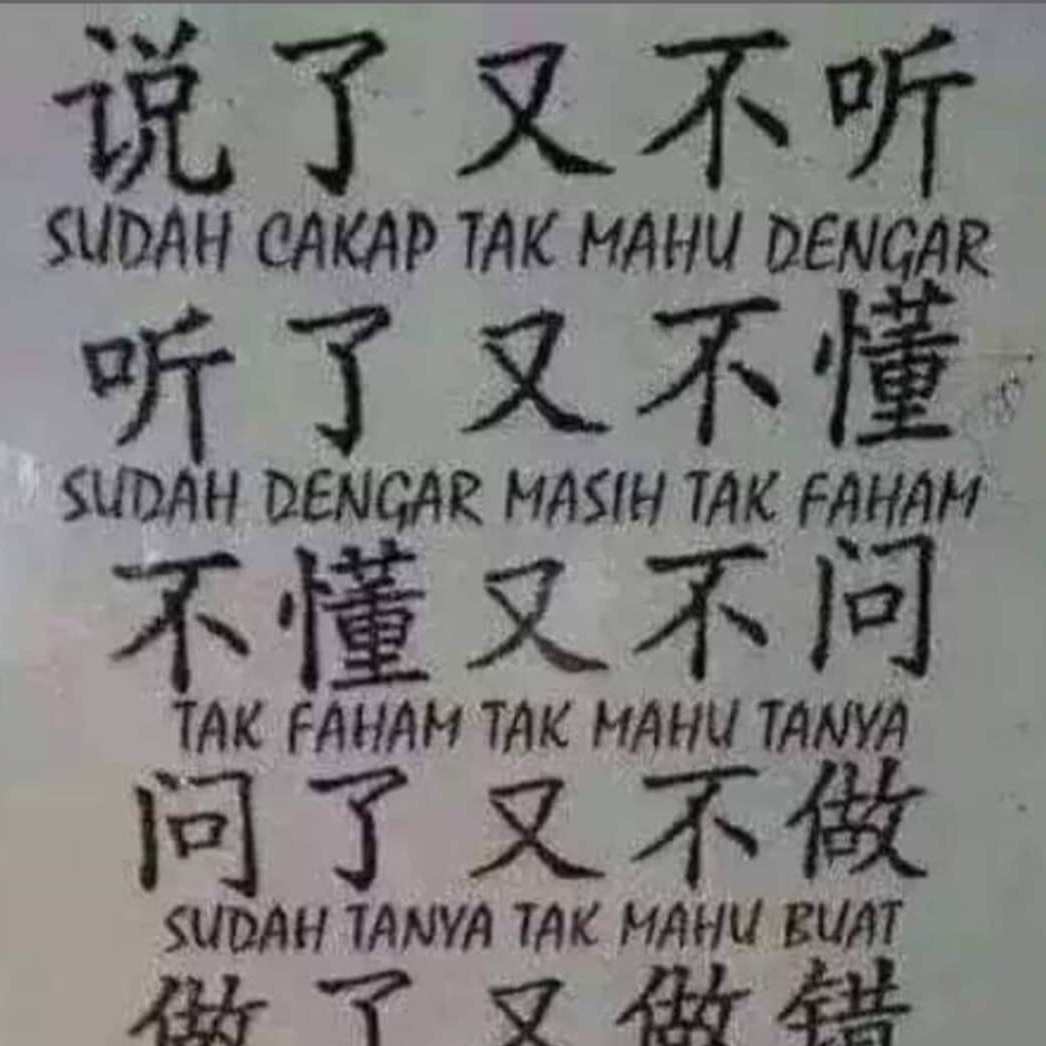 说了又不听
SUDAH CAKAP TAK MAHU DENGAR
听了又不懂
SUDAH DENGAR MASIH TAK FAHAM
不懂又不问
TAK FAHAM TAK MAHU TANYA
问了又不做
SUDAH TANYA TAK MAHU BUAT
做了又做错